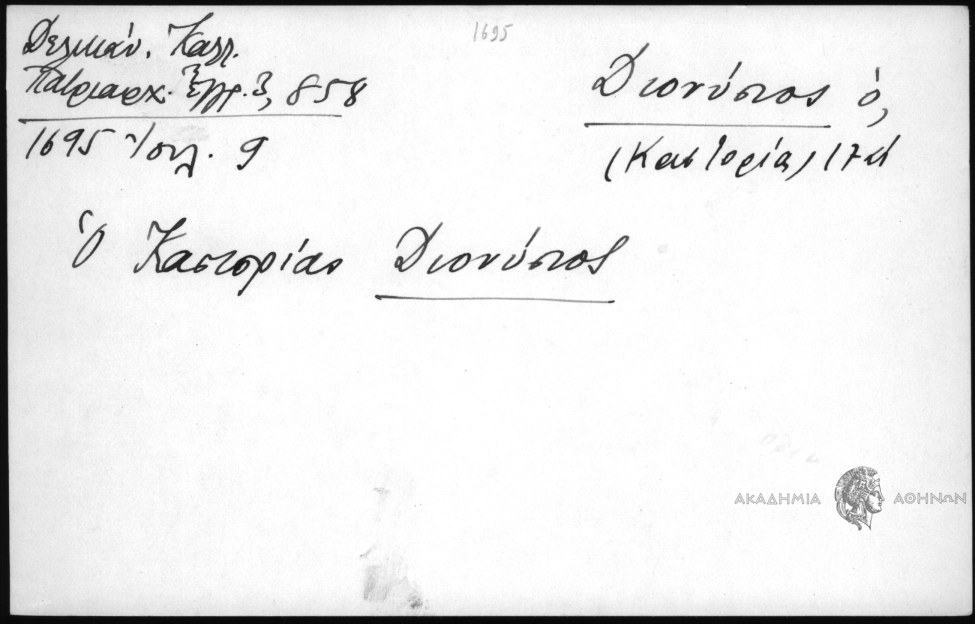 1695
Δελικάν. Καλλ.
Πατριαρχ. Ἔγγρ. 3, 858
1695 Ἰουλ. 9
Διονύσιος ὁ,
(Καστορία) 17 αἰ
Ὁ Καστορίας Διονύσιος
ΑΚΑΔΗΜΙΑ ΑΘΗΝΩΝ